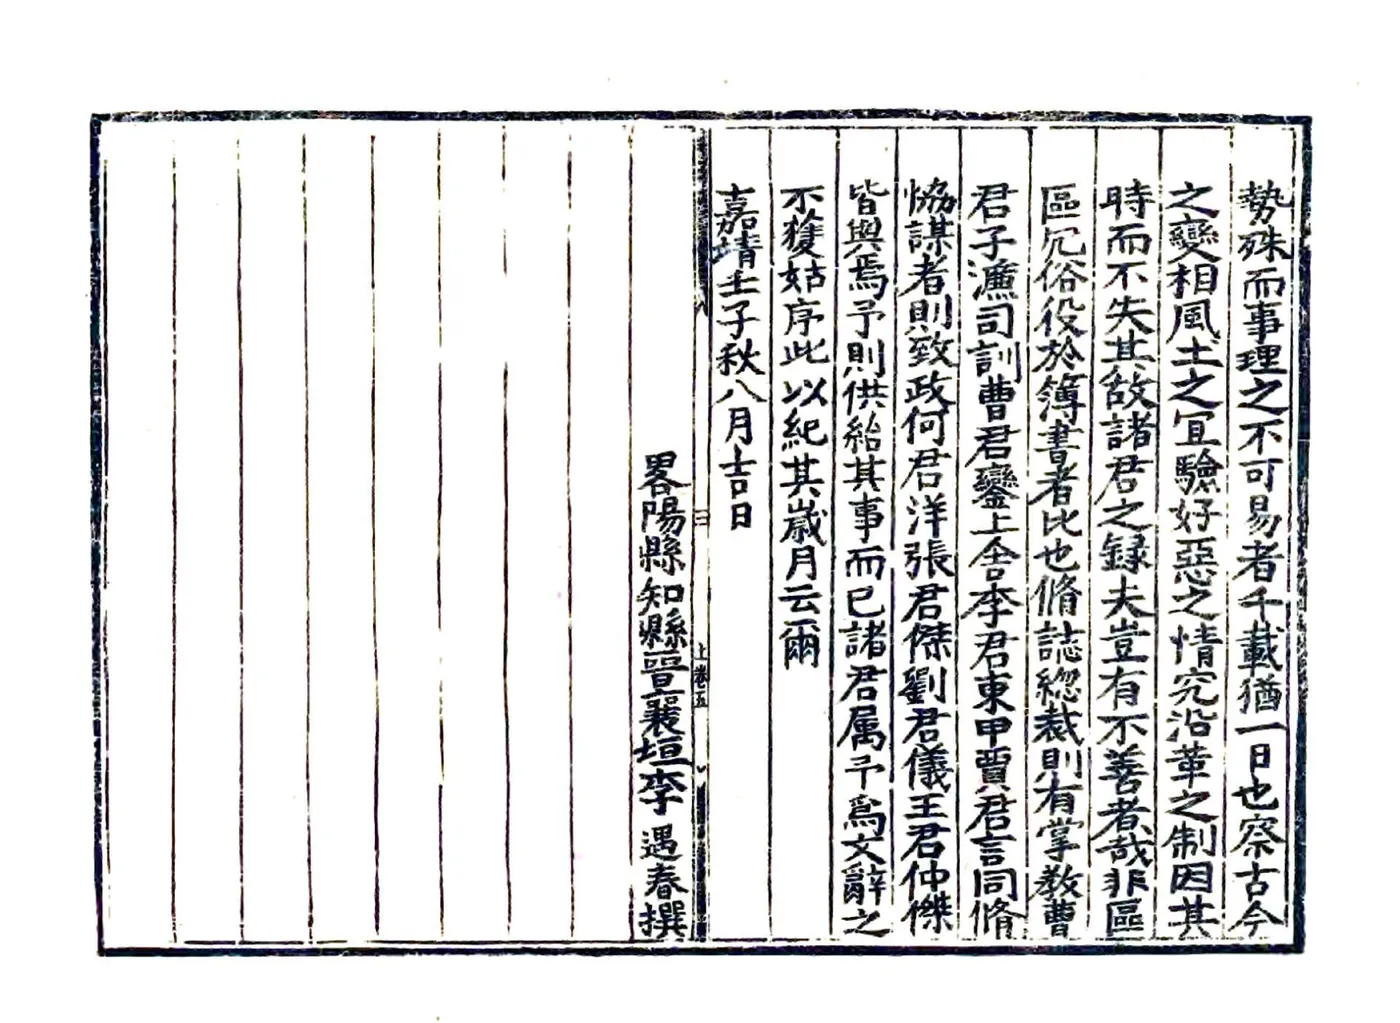 勢殊而事理之不可易者千載猶一日也察古今
之變相風土之宜驗好惡之情究沿革之制因其
時而不失其故諸君之録夫豈有不善者哉非區
區冗俗役於簿書者比也脩誌總裁則有掌教曹
君子濂司訓曹君鑾上舍李君東甲賈君言同脩
恊謀者則致政何君洋張君傑劉君儀王君仲傑
皆與焉予則供給其事而已諸君属予爲文辭之
不獲姑序此以紀其歲月云爾
嘉靖壬子秋八月吉日
二
上卷五
畧陽縣知縣晉襄垣李遇春撰